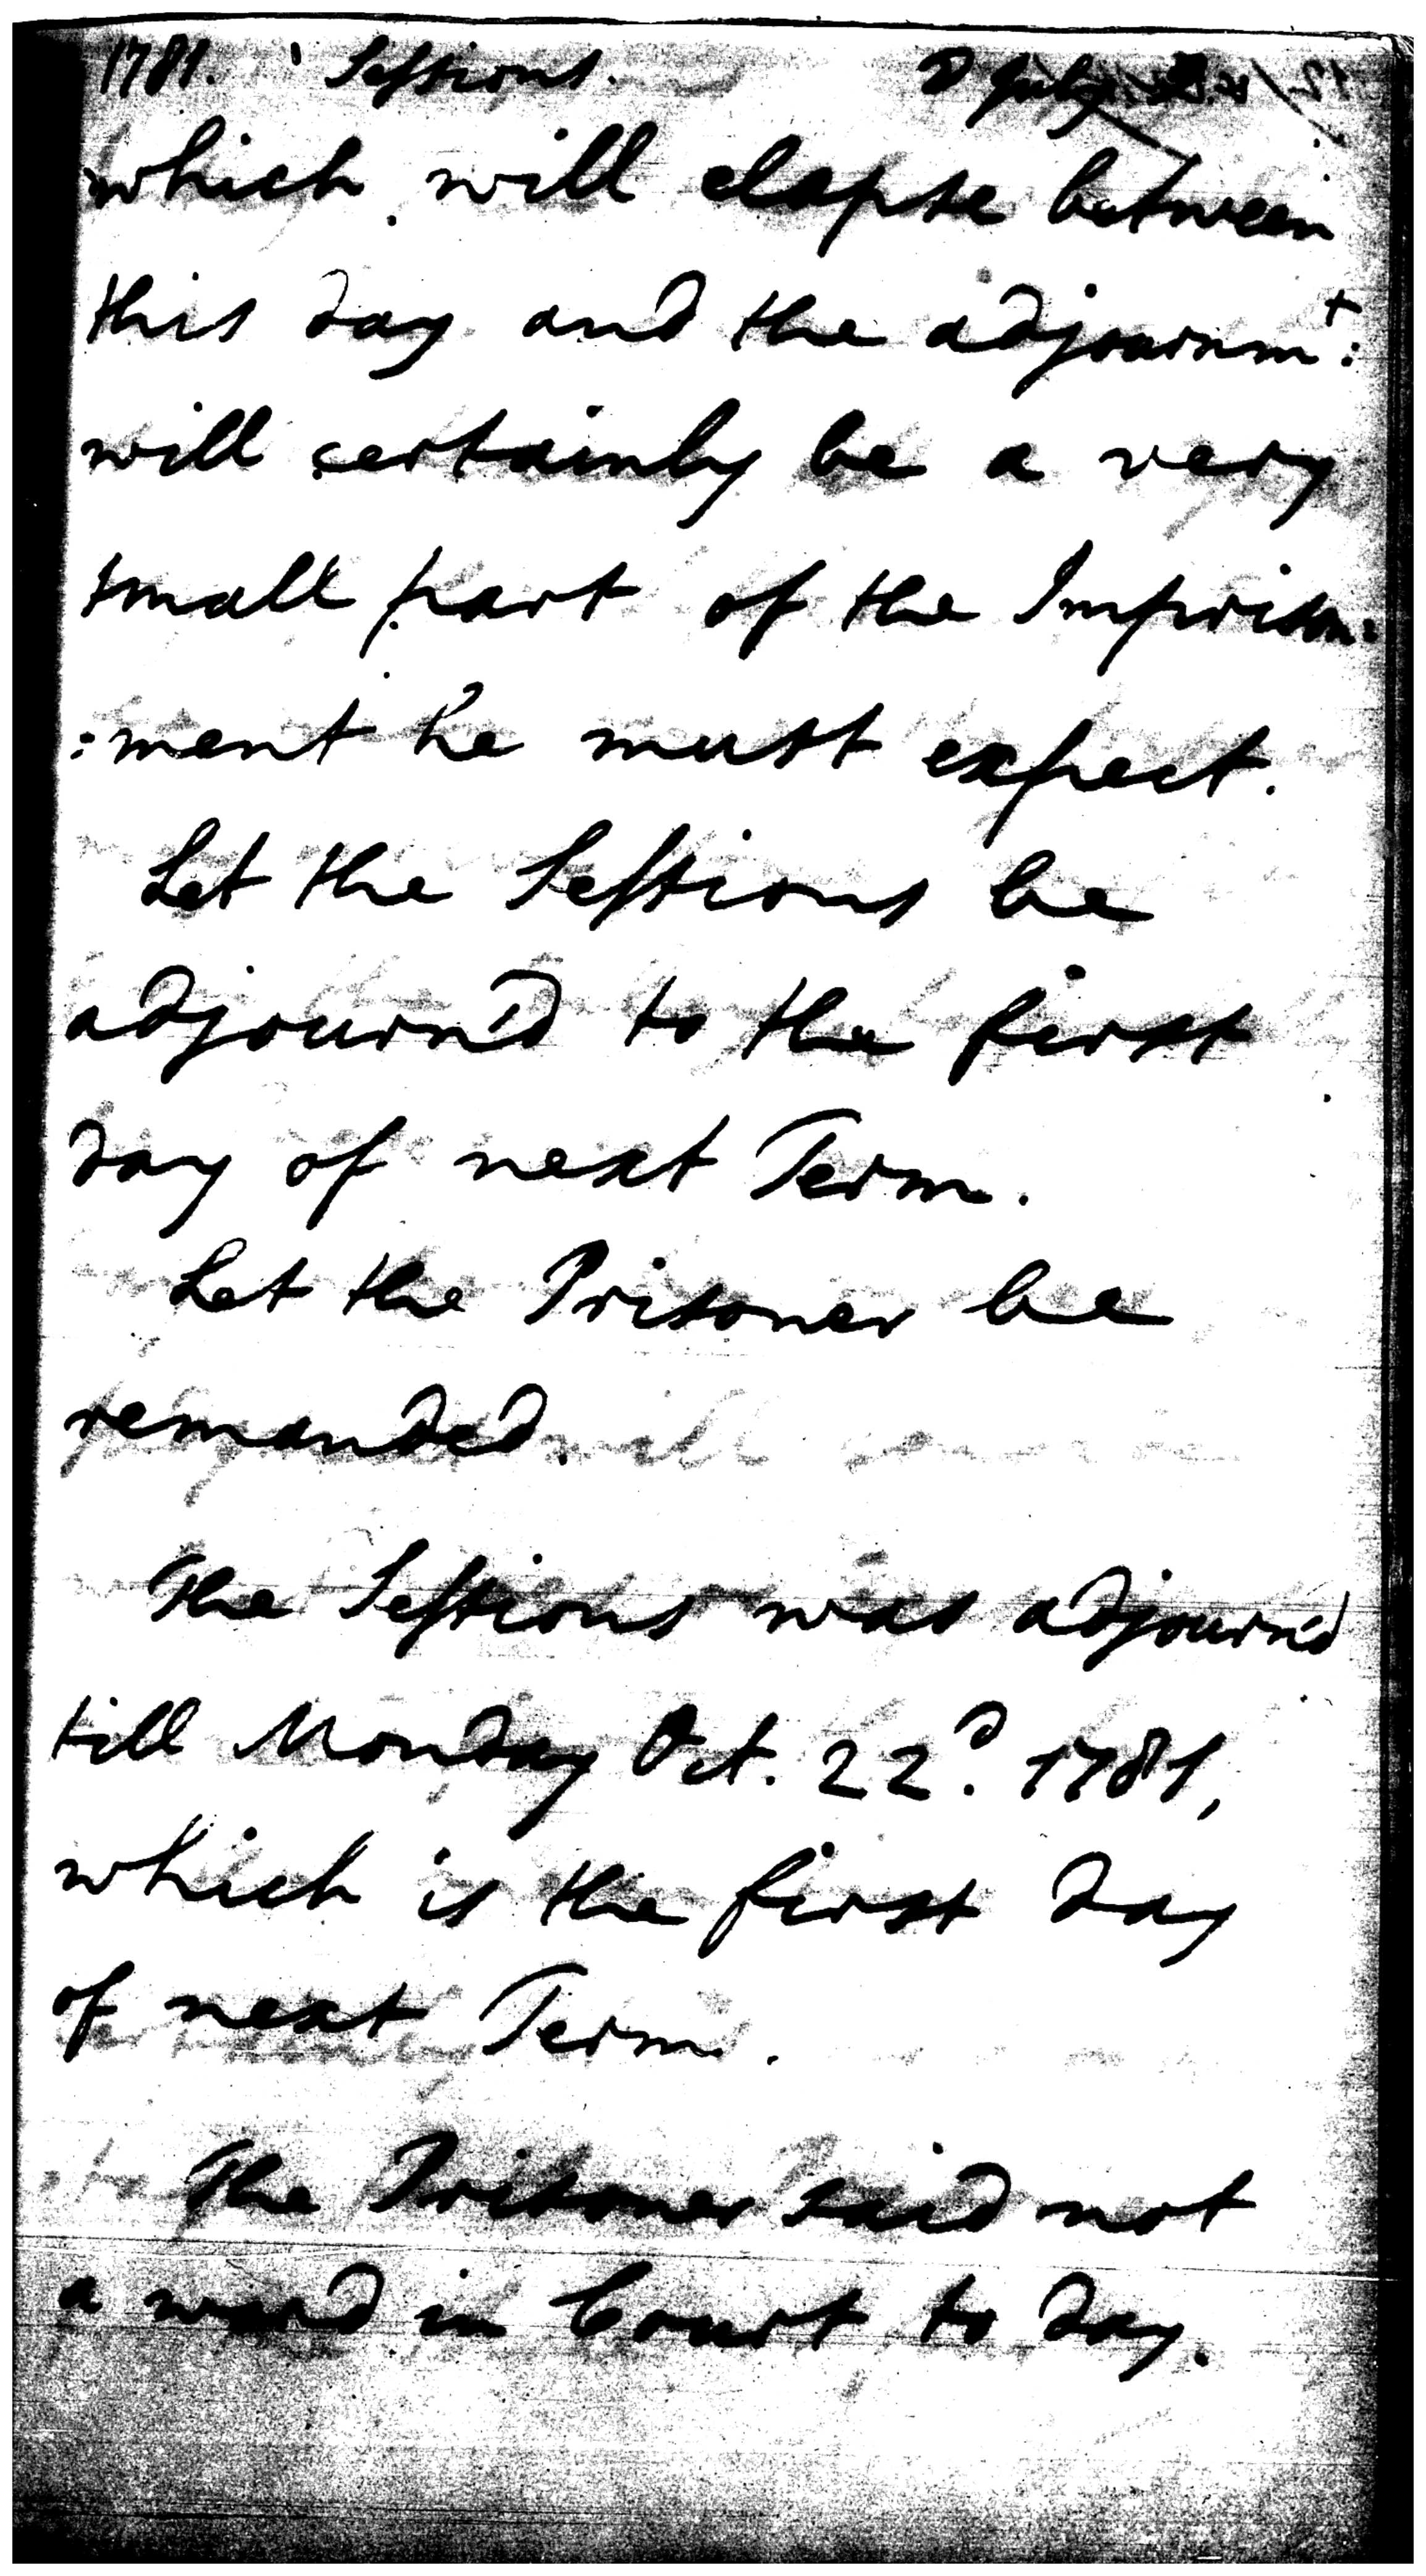 1781. Sessions. D July
which will elapse between
this day and the adjournm^t:
will certainly be a very
small part of the Imprison:
:ment he must expect.
Let the Sessions be
adjourn'd to the first
day of next Term.
Let the Prisoner be
remanded.
The Sessions was adjourn'd
till Monday Oct. 22^d. 1781,
which is the first day
of next Term.
The Prisoner said not
a word in Court to day.